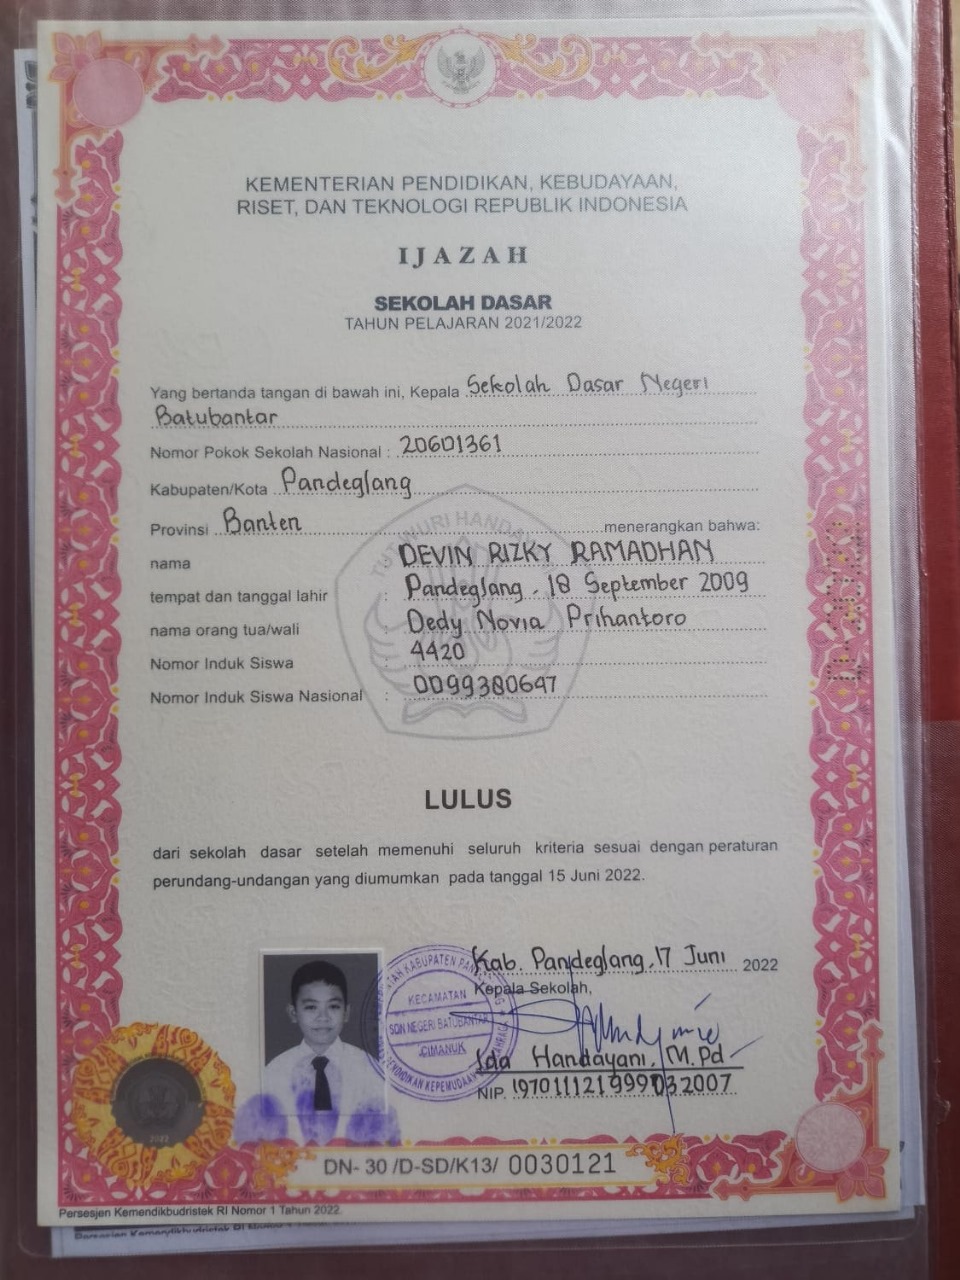 KEMENTERIAN PENDIDIKAN, KEBUDAYAAN,
RISET, DAN TEKNOLOGI REPUBLIK INDONESIA
IJAZAH
SEKOLAH DASAR
TAHUN PELAJARAN 2021/2022
Yang bertanda tangan di bawah ini, Kepala Sekolah Dasar Negeri
Batubantar
Nomor Pokok Sekolah Nasional : 20601361
Kabupaten/Kota Pandeglang
Provinsi Banten menerangkan bahwa:
TUT WURI HANDAYANI
nama : DEVIN RIZKY RAMADHAN
tempat dan tanggal lahir : Pandeglang, 18 September 2009
nama orang tua/wali : Dedy Novia Prihantoro
Nomor Induk Siswa : 4420
Nomor Induk Siswa Nasional : 0099380647
LULUS
dari sekolah dasar setelah memenuhi seluruh kriteria sesuai dengan peraturan
perundang-undangan yang diumumkan pada tanggal 15 Juni 2022.
Kab. Pandeglang, 17 Juni 2022
Kepala Sekolah,
KECAMATAN
SDN NEGERI BATUBANTAR
CIMANUK
Ida Handayani, M.Pd
NIP. 197011121999032007
2022
DN- 30 /D-SD/K13/ 0030121
Persesjen Kemendikbudristek RI Nomor 1 Tahun 2022